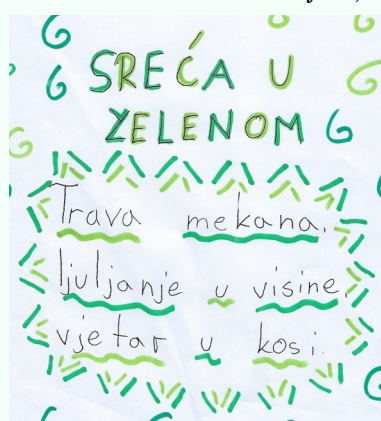 SREĆA U
ZELENOM
Trava mekana.
ljuljanje u visine.
vjetar u kosi.